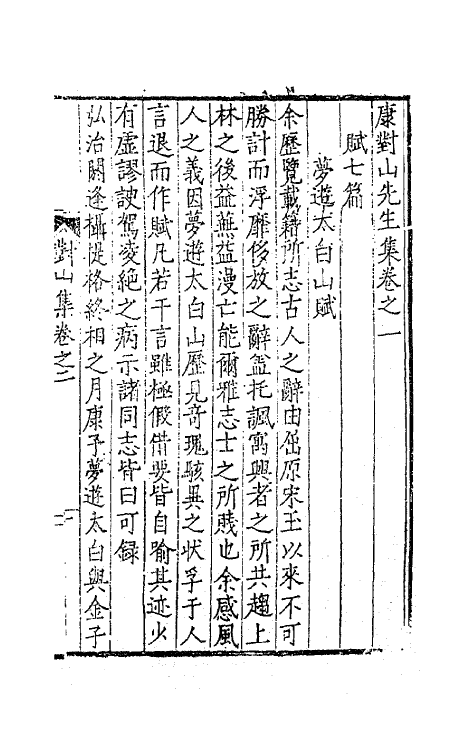 康對山先生集卷之一
賦七篇
夢遊太白山賦
余歷覽載籍所志古人之辭由屈原宋玉以來不可
勝計而浮靡侈放之辭蓋托諷寓興者之所共趨上
林之後益蕪益漫亡能爾雅志士之所賤也余感風
人之義因夢遊太白山歷見竒瑰駭異之狀孚于人
言退而作賦凡若干言雖極假借要皆自喻其迹火
有虛謬詖駕夌絶之病示諸同志皆曰可録
弘治閼逢攝提格終相之月康子夢遊太白與金子
對山集卷之二
一